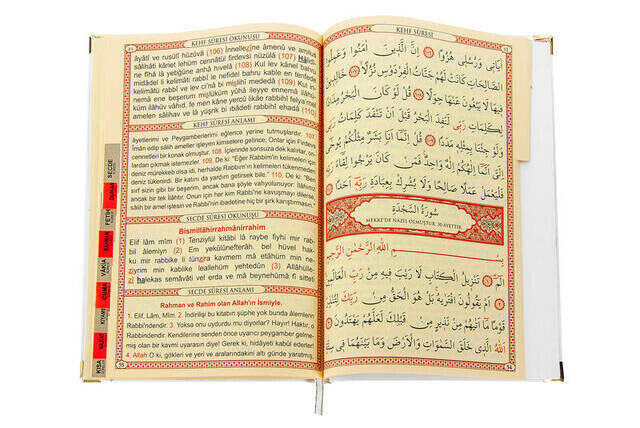 KEHF SÛRESİ OKUNUŞU
âyâtî ve rusulî hüzüvâ (106) İnnellezîne âmenû ve amilus
sâlihâti kânet lehüm cennâtül firdevsi nüzülâ (107) Hâlidî-
ne fîhâ lâ yebğûne anhâ hıvelâ (108) Kul lev kânel bahru
midâdel li kelimâti rabbî le nefidel bahru kable en tenfede
kelimâtü rabbî ve lev ci'nâ bi mislihî mededâ (109) Kul in-
nemâ ene beşerum mislüküm yûhâ ileyye ennemâ ilâhü-
küm ilâhüv vâhıd, fe men kâne yercû likâe rabbihî felya'mel
amelen sâlihav ve lâ yüşrik bi ıbâdeti rabbihî ehadâ (110)
KEHF SÛRESİ ANLAMI
âyetlerimi ve Peygamberlerimi eğlence yerine tutmuşlardır. 107.
İman edip sâlih ameller işleyen kimselere gelince; Onlar için Firdevs
cennetleri bir konak olmuştur. 108. İçlerinde sonsuza dek kalırlar, on-
lardan çıkmak istemezler. 109. De ki: "Eğer Rabbimin kelimeleri için
deniz mürekkep olsa idi, herhalde Rabbimin kelimeleri tükenmeden
deniz tükenirdi. Bir katını da yardım getirsek bile." 110. De ki: "Ben
sırf sizin gibi bir beşerim, ancak bana şöyle vahyolunuyor: İlâhınız
ancak bir tek ilâhtır. Onun için her kim Rabbine kavuşmayı dilerse
sâlih amel işlesin ve Rabbinin ibadetine hiç bir şirk karıştırmasın
SECDE SÛRESİ OKUNUŞU
Bismillâhirrahmânirrahîm
Elif lâm mîm (1) Tenzîylül kitâbi lâ raybe fîyhi mir rab-
bil âlemiyn (2) Em yekûlûnefterâh, bel hüvel hak-
ku mir rabbike li tünzira kavmem mâ etâhüm min ne-
ziyrim min kablike leallehüm yehtedûn (3) Allâhülle-
zî halekas semâvâti vel erda ve mâ beynehümâ fî sitteti
SECDE SÛRESİ ANLAMI
Rahman ve Rahim olan Allah'ın İsmiyle.
1. Elif, Lâm, Mîm. 2. İndirilişi bu kitabın şüphe yok bunda âlemlerin
Rabbi'ndendir. 3. Yoksa onu uydurdu mu diyorlar? Hayır! Haktır, o
Rabbindendir. Kendilerine senden önce uyarıcı peygamber gelme-
miş olan bir kavmi uyarasın diye! Gerek ki, hidâyeti kabûl ederler!
4. Allah O ki, gökleri ve yeri ve aralarındaki altı günde yaratmış,
SECDE
FETİH
RAHMAN
VAKIA
CUMA
KIYAMET
KISA
KEHF SÛRESİ
اٰيَات۪ي وَرُسُل۪ي هُزُوًا اِنَّ الَّذ۪ينَ اٰمَنُوا وَعَمِلُوا
الصَّالِحَاتِ كَانَتْ لَهُمْ جَنَّاتُ الْفِرْدَوْسِ نُزُلًا خَالِد۪ينَ
ف۪يهَا لَا يَبْغُونَ عَنْهَا حِوَلًا قُلْ لَوْ كَانَ الْبَحْرُ مِدَادًا
لِكَلِمَاتِ رَبّ۪ي لَنَفِدَ الْبَحْرُ قَبْلَ اَنْ تَنْفَدَ كَلِمَاتُ رَبّ۪ي
وَلَوْ جِئْنَا بِمِثْلِه۪ مَدَدًا قُلْ اِنَّمَٓا اَنَا۬ بَشَرٌ مِثْلُكُمْ يُوحٰٓى
اِلَيَّ اَنَّمَٓا اِلٰهُكُمْ اِلٰهٌ وَاحِدٌ فَمَنْ كَانَ يَرْجُوا لِقَٓاءَ رَبِّه۪
فَلْيَعْمَلْ عَمَلًا صَالِحًا وَلَا يُشْرِكْ بِعِبَادَةِ رَبِّه۪ٓ اَحَدًا
سُورَةُ السَّجْدَةِ
MEKKE'DE NAZİL OLMUŞTUR. 30 AYETTİR.
بِسْمِ اللّٰهِ الرَّحْمٰنِ الرَّح۪يمِ
الٓمٓ تَنْز۪يلُ الْكِتَابِ لَا رَيْبَ ف۪يهِ مِنْ رَبِّ الْعَالَم۪ينَ
اَمْ يَقُولُونَ افْتَرٰيهُ بَلْ هُوَ الْحَقُّ مِنْ رَبِّكَ لِتُنْذِرَ
قَوْمًا مَٓا اَتٰيهُمْ مِنْ نَذ۪يرٍ مِنْ قَبْلِكَ لَعَلَّهُمْ يَهْتَدُونَ
اَللّٰهُ الَّذ۪ي خَلَقَ السَّمٰوَاتِ وَالْاَرْضَ وَمَا بَيْنَهُمَا ف۪ي